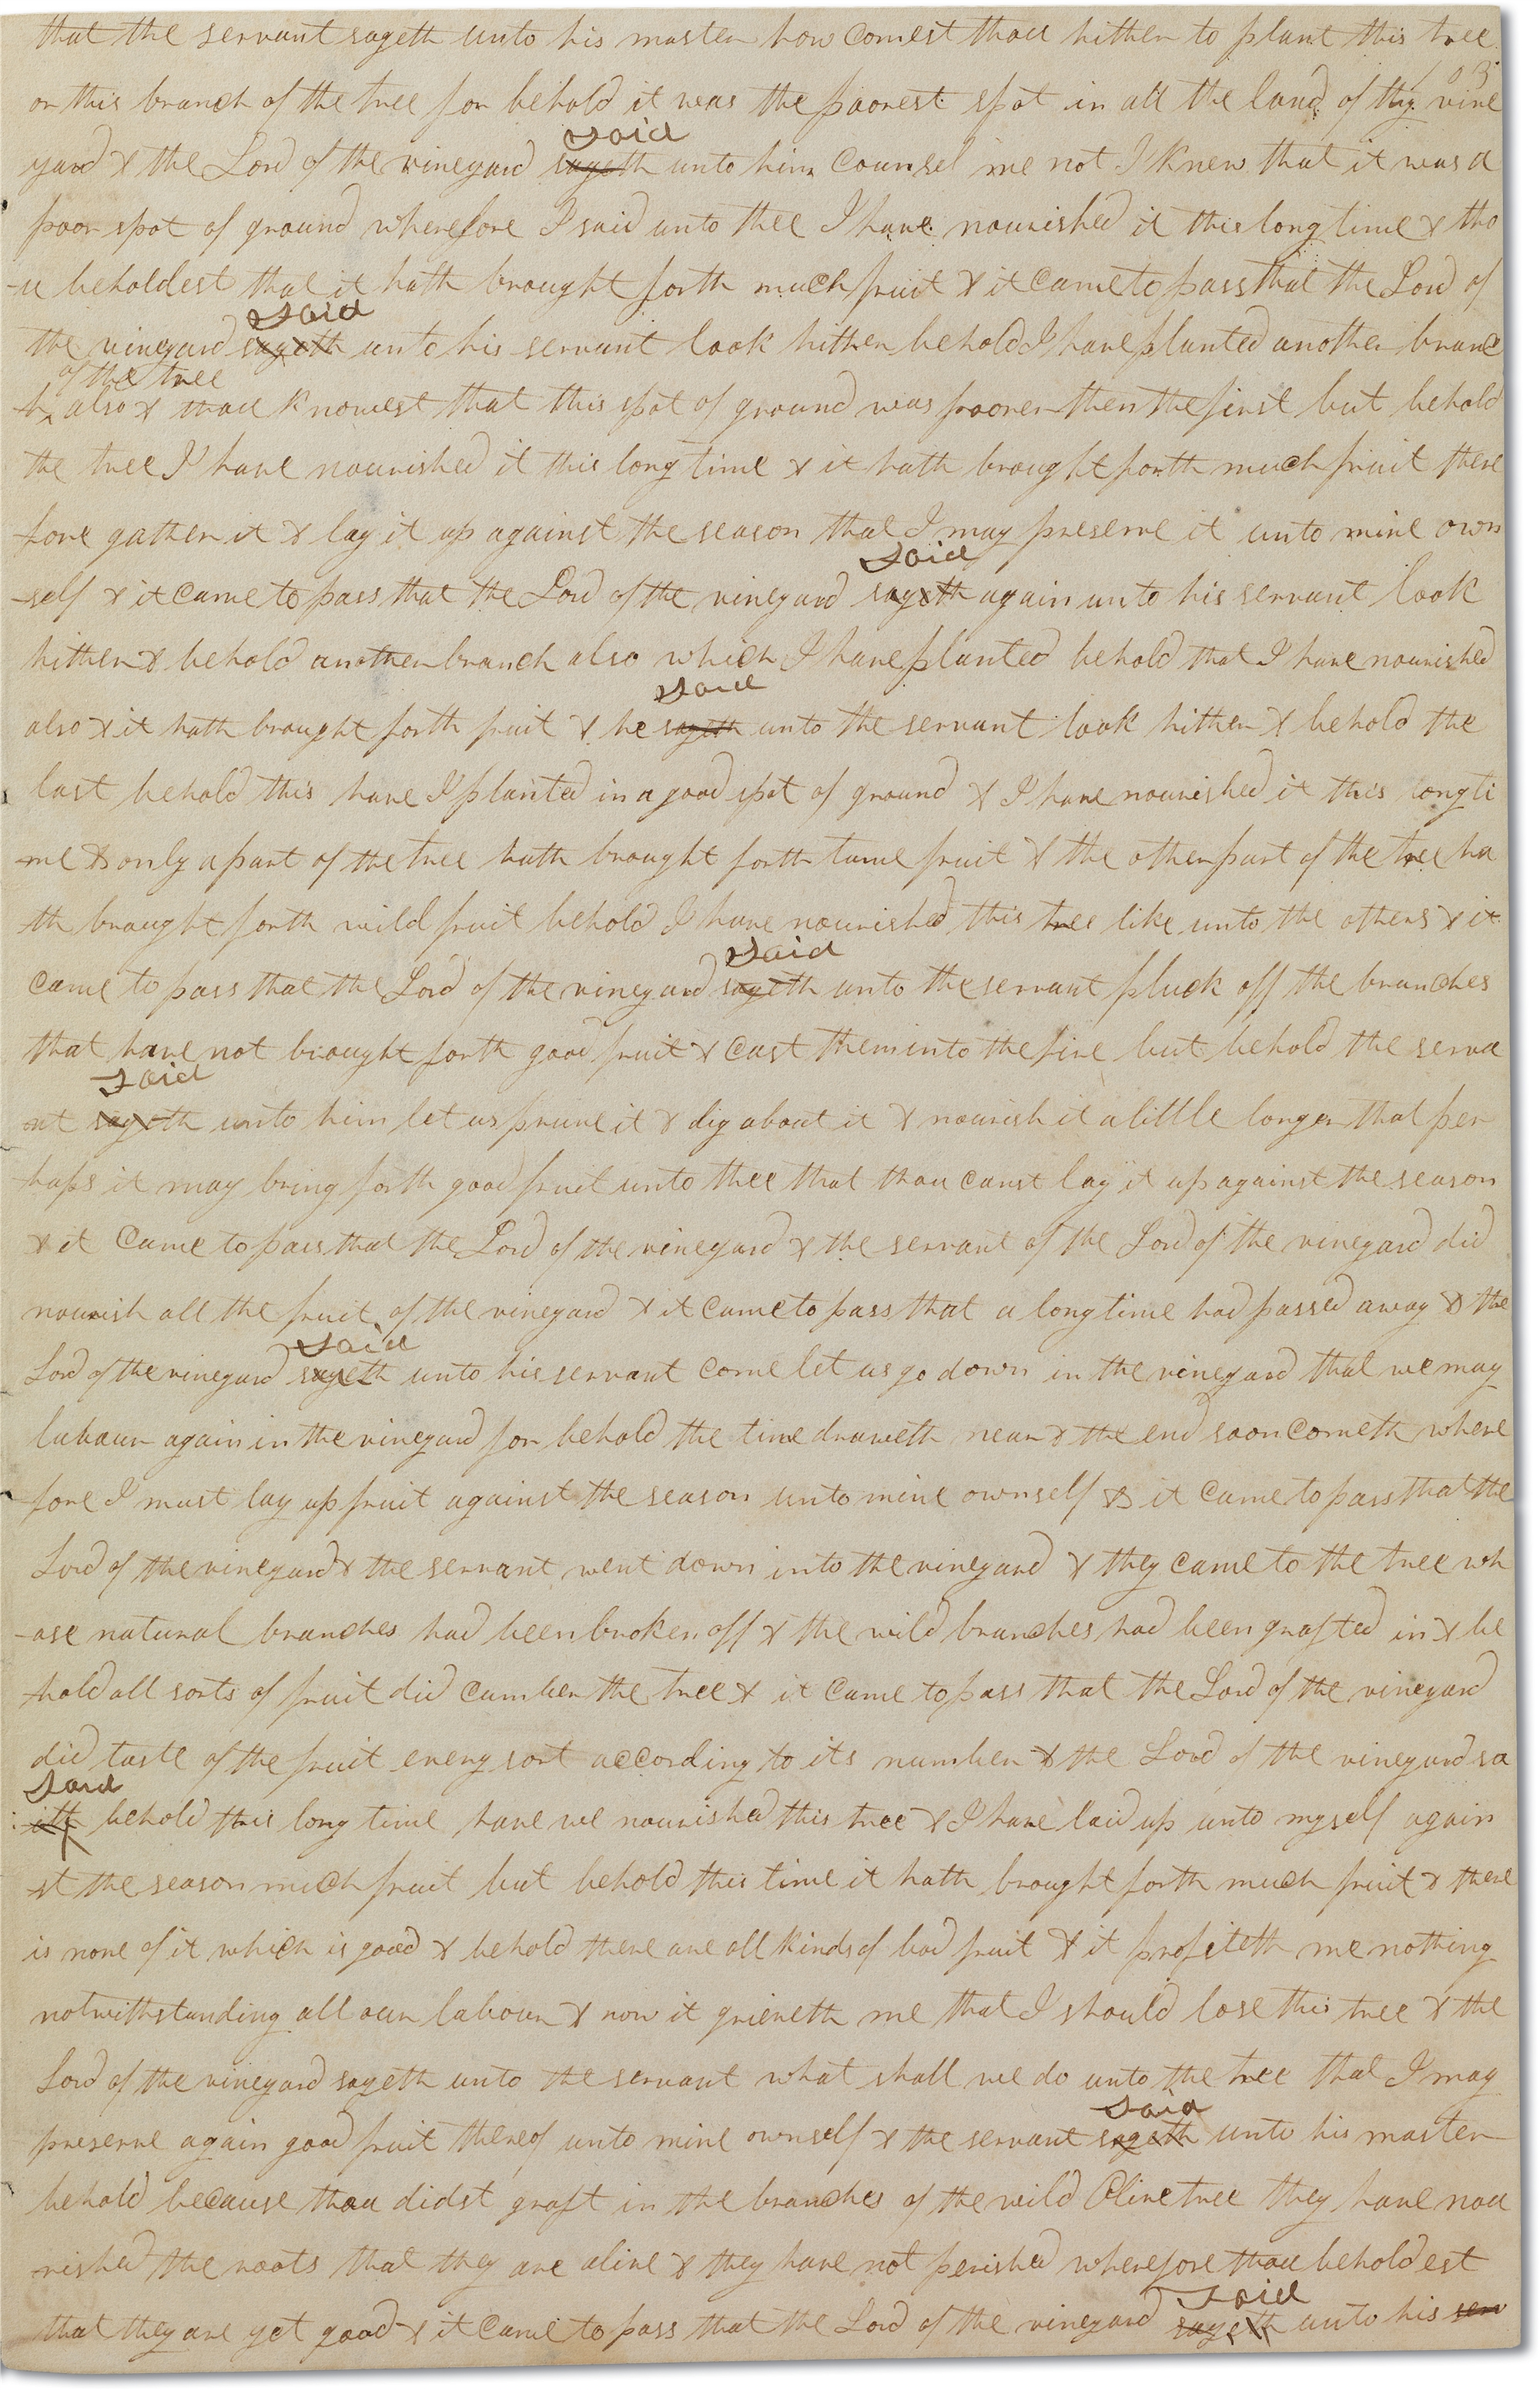 that the servant sayeth unto his master how comest thou hither to plant this tree
105
or this branch of the tree for behold it was the poorest spot in all the land of thy vine
said
yard & the Lord of the vineyard sayeth unto him Counsel me not I knew that it was a
poor spot of ground wherefore I said unto thee I have nourished it this long time & tho
-u beholdest that it hath brought forth much fruit & it came to pass that the Lord of
said
the vineyard sayeth unto his servant look hither behold I have planted another branc
of the tree
h also & thou knowest that this spot of ground was poorer then the first but behold
the tree I have nourished it this long time & it hath brought forth much fruit there
fore gather it & lay it up against the season that I may preserve it unto mine own
said
-self & it came to pass that the Lord of the vineyard sayeth again unto his servant look
hither & behold another branch also which I have planted behold that I have nourished
said
also & it hath brought forth fruit & he sayeth unto the servant look hither & behold the
last behold this have I planted in a good spot of ground & I have nourished it this long ti
-me & only a part of the tree hath brought forth tame fruit & the other part of the tree ha
-th brought forth wild fruit behold I have nourished this tree like unto the others & it
said
came to pass that the Lord of the vineyard sayeth unto the servant pluck off the branches
that have not brought forth good fruit & cast them into the fire but behold the serva
said
nt sayeth unto him let us prune it & dig about it & nourish it a little longer that per
haps it may bring forth good fruit unto thee that thou canst lay it up against the season
& it came to pass that the Lord of the vineyard & the servant of the Lord of the vineyard did
nourish all the fruit of the vineyard & it came to pass that a long time had passed away & the
said
Lord of the vineyard sayeth unto his servant come let us go down in the vineyard that we may
labour again in the vineyard for behold the time draweth near & the end soon cometh where
fore I must lay up fruit against the season unto mine ownself & it came to pass that the
Lord of the vineyard & the servant went down into the vineyard & they came to the tree wh
-ose natural branches had been broken off & the wild branches had been grafted in & be
-hold all sorts of fruit did cumber the tree & it came to pass that the Lord of the vineyard
did taste of the fruit every sort according to its number & the Lord of the vineyard sa
said
ith behold this long time have we nourished this tree & I have laid up unto myself again
st the season much fruit but behold this time it hath brought forth much fruit & there
is none of it which is good & behold there are all kinds of bad fruit & it profiteth me nothing
notwithstanding all our labour & now it grieveth me that I should lose this tree & the
Lord of the vineyard sayeth unto the servant what shall we do unto the tree that I may
said
preserve again good fruit thereof unto mine ownself & the servant sayeth unto his master
behold because thou didst graft in the branches of the wild Olive tree they have nou
rished the roots that they are alive & they have not perished wherefore thou beholdest
said
that they are yet good & it came to pass that the Lord of the vineyard sayeth unto his ser